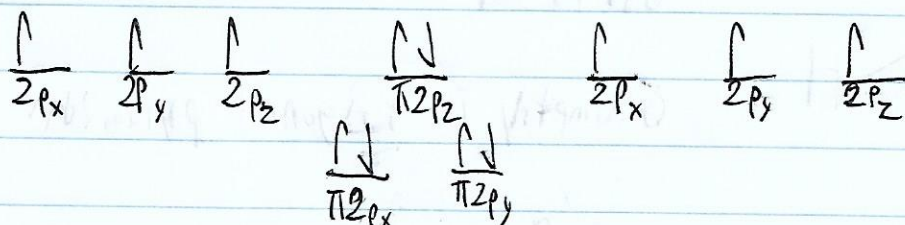 2px 2py 2pz π2pz 2px 2py 2pz
π2px π2py